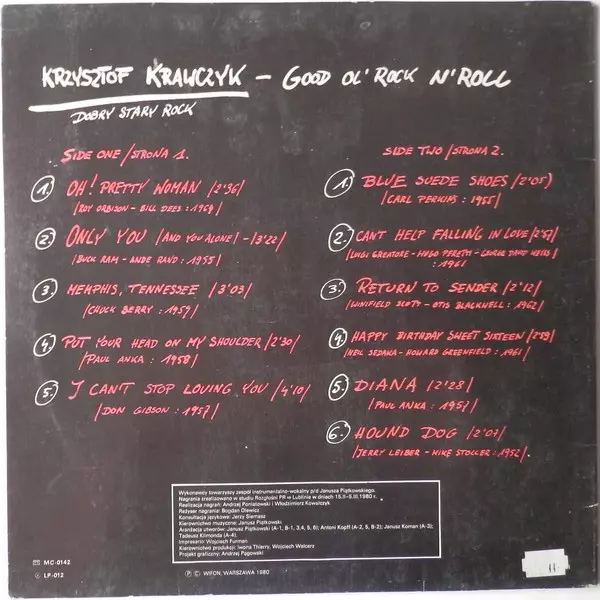 KRZYSZTOF KRAWCZYK – GOOD OL' ROCK N' ROLL
DOBRY STARY ROCK
SIDE ONE /STRONA 1.
1. OH! PRETTY WOMAN /2'36/
/ROY ORBISON - BILL DEES: 1964/
2. ONLY YOU /AND YOU ALONE/ - /3'22/
/BUCK RAM - ANDE RAND: 1955/
3. MEMPHIS, TENNESSEE /3'03/
/CHUCK BERRY: 1959/
4. PUT YOUR HEAD ON MY SHOULDER /2'30/
/PAUL ANKA: 1958/
5. I CAN'T STOP LOVING YOU /4'10/
/DON GIBSON: 1957/
SIDE TWO /STRONA 2.
1. BLUE SUEDE SHOES /2'05/
/CARL PERKINS: 1955/
2. CANT HELP FALLING IN LOVE /2'57/
/LUIGI CREATORE - HUGO PERETTI - GEORGE DAVID WEISS/
: 1961/
3. RETURN TO SENDER /2'12/
/WINIFIELD SCOTT - OTIS BLACKWELL: 1962/
4. HAPPY BIRTHDAY SWEET SIXTEEN /2'39/
/NEIL SEDAKA - HOWARD GREENFIELD: 1961/
5. DIANA /2'28/
/PAUL ANKA: 1957/
6. HOUND DOG /2'07/
/JERRY LEIBER - MIKE STOLLER: 1952/
Wykonawcy towarzyszy zespół instrumentalno-wokalny p/d Janusza Piątkowskiego.
Nagrania zrealizowano w studiu Rozgłośni PR w Lublinie w dniach 15.II–5.III.1980 r.
Realizacja nagrań: Andrzej Poniatowski i Włodzimierz Kowalczyk
Reżyser nagrania: Bogdan Olewicz
Konsultacja językowa: Jerzy Siemasz
Kierownictwo muzyczne: Janusz Piątkowski;
Aranżacja utworów: Janusz Piątkowski (A-1, B-1, 3,4, 5, 6); Antoni Kopff (A-2, 5, B-2); Janusz Koman (A-3);
Tadeusz Klimonda (A-4).
Impresario: Wojciech Furman
Kierownictwo produkcji: Iwona Thierry, Wojciech Welcerz
Projekt graficzny: Andrzej Pągowski
MC-0142
LP-012
Ⓟ © WIFON, WARSZAWA 1980